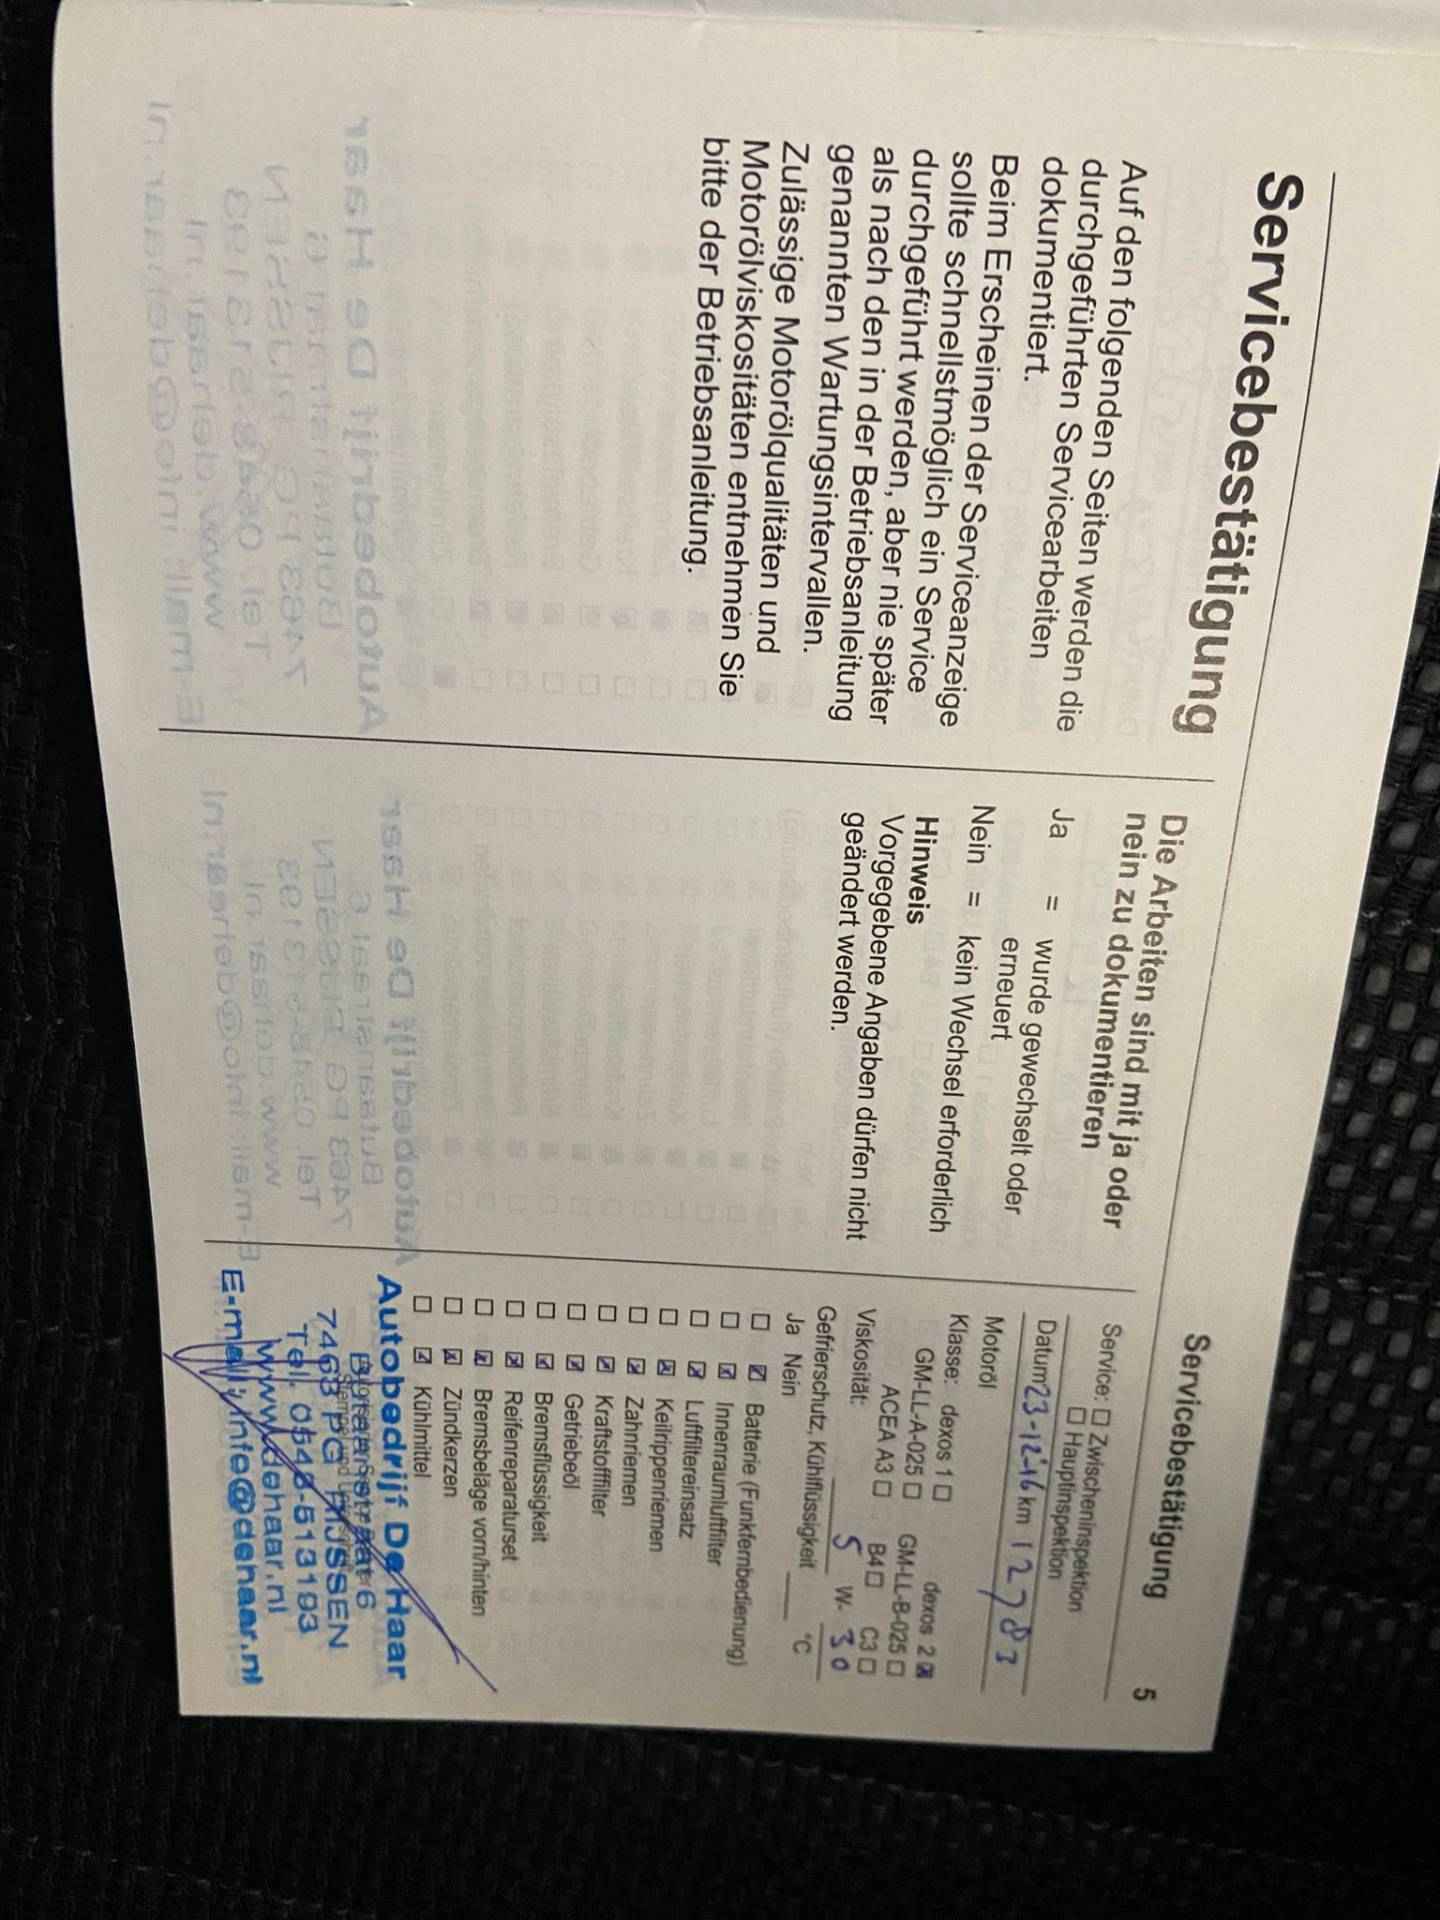 Servicebestätigung 5
Servicebestätigung
Auf den folgenden Seiten werden die
durchgeführten Servicearbeiten
dokumentiert.
Beim Erscheinen der Serviceanzeige
sollte schnellstmöglich ein Service
durchgeführt werden, aber nie später
als nach den in der Betriebsanleitung
genannten Wartungsintervallen.
Zulässige Motorölqualitäten und
Motorölviskositäten entnehmen Sie
bitte der Betriebsanleitung.
Die Arbeiten sind mit ja oder
nein zu dokumentieren
Ja = wurde gewechselt oder
erneuert
Nein = kein Wechsel erforderlich
Hinweis
Vorgegebene Angaben dürfen nicht
geändert werden.
Service: ☐ Zwischeninspektion
☐ Hauptinspektion
Datum 23-12-16 km 12783
Motoröl
Klasse: dexos 1 ☐ dexos 2 ☒
GM-LL-A-025 ☐ GM-LL-B-025 ☐
ACEA A3 ☐ B4 ☐ C3 ☐
Viskosität: 5 W- 30
Gefrierschutz, Kühlflüssigkeit °C
Ja Nein
☐ ☒ Batterie (Funkfernbedienung)
☐ ☒ Innenraumluftfilter
☐ ☒ Luftfiltereinsatz
☐ ☒ Keilrippenriemen
☐ ☒ Zahnriemen
☐ ☒ Kraftstofffilter
☐ ☒ Getriebeöl
☐ ☒ Bremsflüssigkeit
☐ ☒ Reifenreparaturset
☐ ☒ Bremsbeläge vorn/hinten
☐ ☒ Zündkerzen
☐ ☒ Kühlmittel
Autobedrijf De Haar
6
7463 PG RIJSSEN
Tel. 0548-513193
www.dehaar.nl
E-mail: info@dehaar.nl